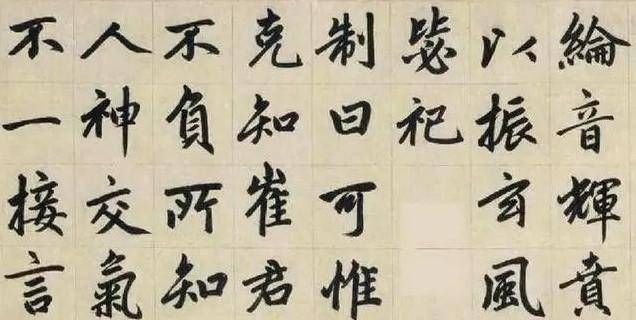 綸音輝賁
以振玄風
毖祀
制曰可惟
克知崔君
不負所知
人神交氣
不一接言